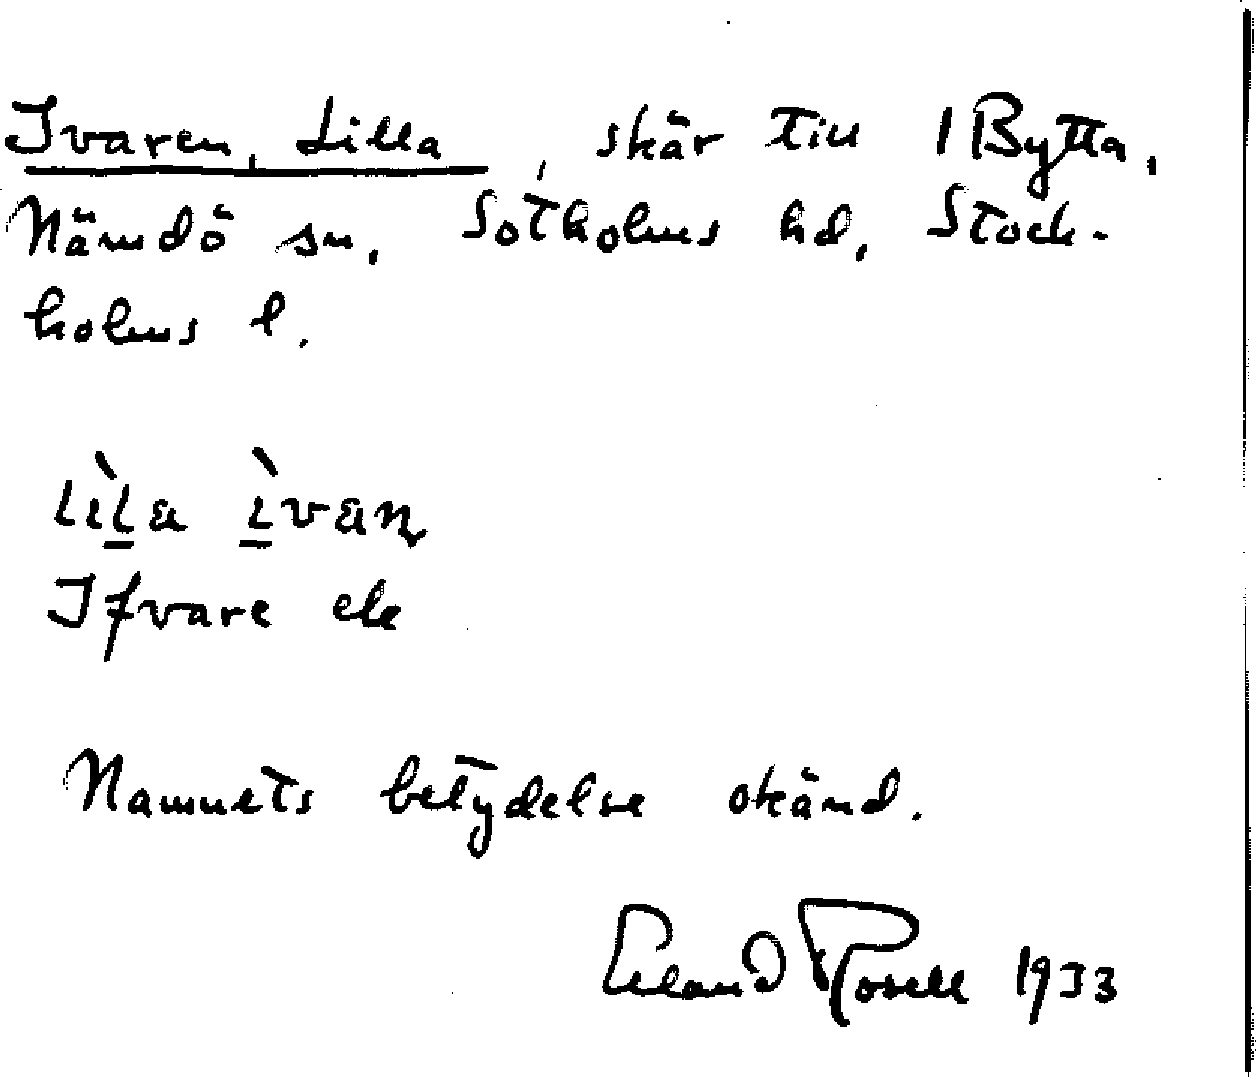 Ivaren, Lilla, skär till 1 Bytta,
Nämdö sn, Sotholms hd, Stock-
holms l.
lìla ìvaɳ
Ifvare ek
Namnets betydelse okänd.
Erland Rosell 1933